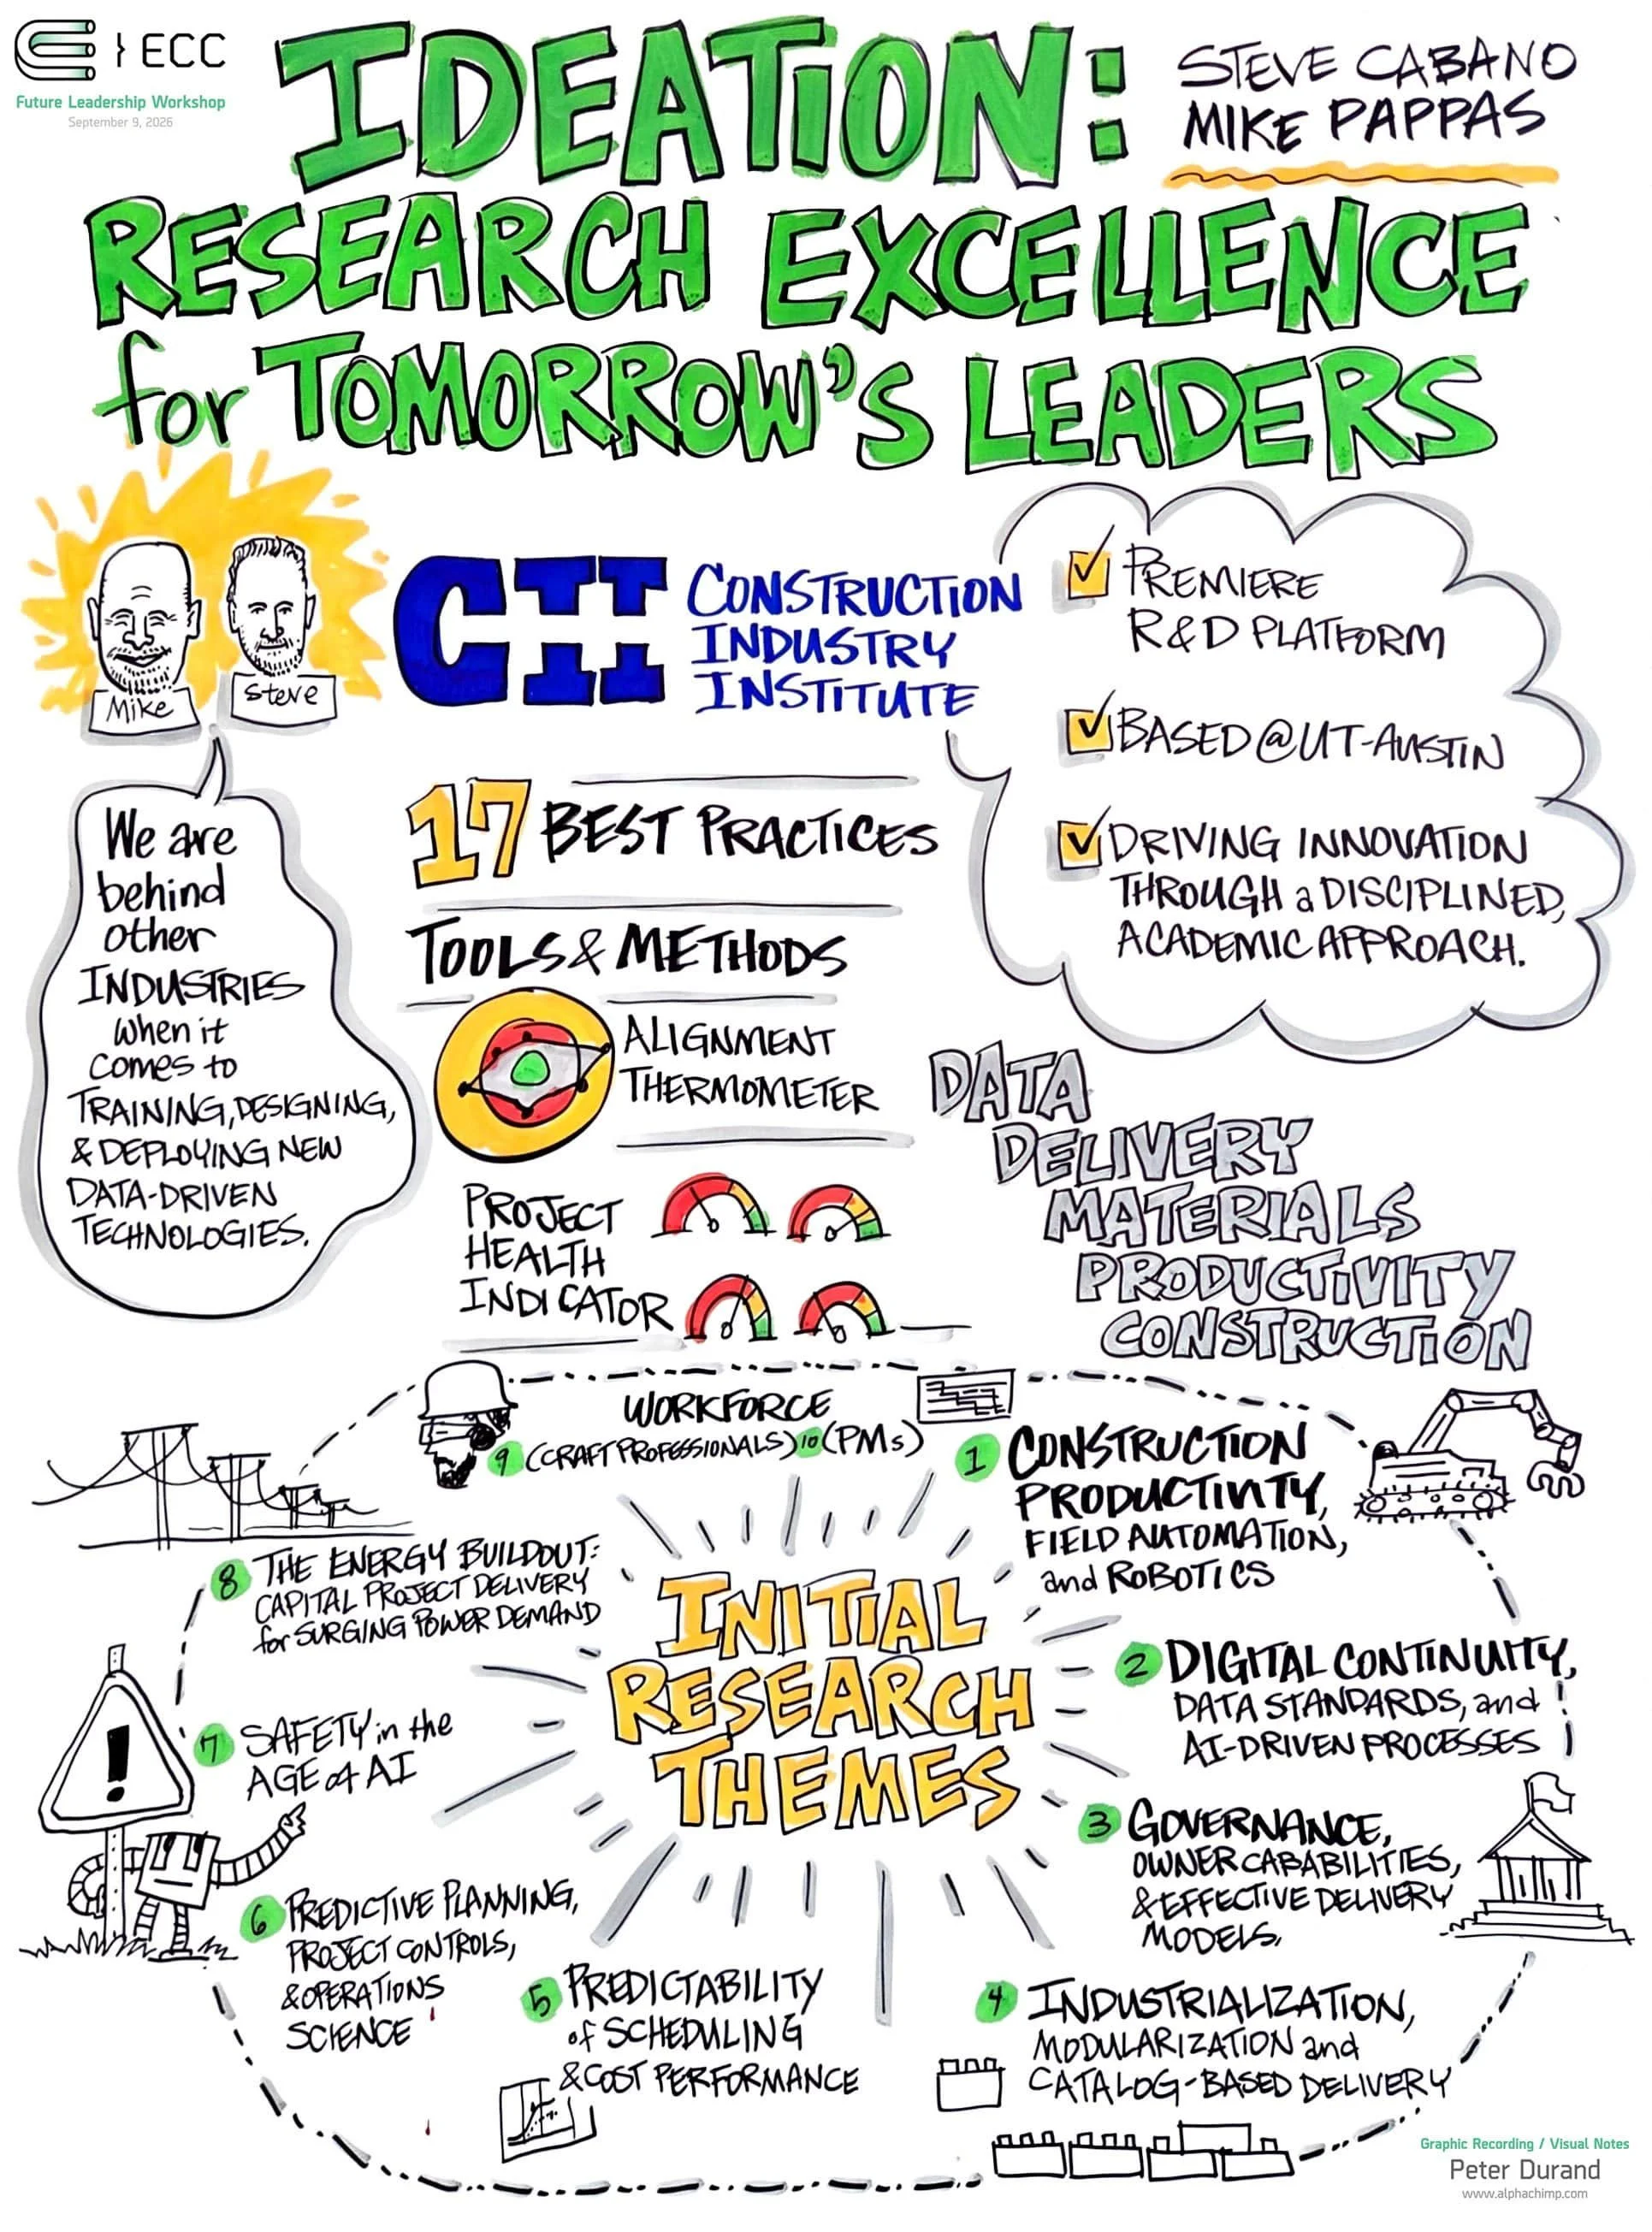 ECC
Future Leadership Workshop
September 9, 2026
IDEATION:
STEVE CABANO
MIKE PAPPAS
RESEARCH EXCELLENCE
for TOMORROW'S LEADERS
Mike
Steve
CII
CONSTRUCTION
INDUSTRY
INSTITUTE
PREMIERE
R&D PLATFORM
BASED @ UT-AUSTIN
DRIVING INNOVATION
THROUGH a DISCIPLINED,
ACADEMIC APPROACH.
We are
behind
other
INDUSTRIES
when it
comes to
TRAINING, DESIGNING,
& DEPLOYING NEW
DATA-DRIVEN
TECHNOLOGIES.
17 BEST PRACTICES
TOOLS & METHODS
ALIGNMENT
THERMOMETER
PROJECT
HEALTH
INDICATOR
DATA
DELIVERY
MATERIALS
PRODUCTIVITY
CONSTRUCTION
WORKFORCE
9 (CRAFT PROFESSIONALS) 10 (PMs)
1 CONSTRUCTION
PRODUCTIVITY,
FIELD AUTOMATION,
and ROBOTICS
INITIAL
RESEARCH
THEMES
2 DIGITAL CONTINUITY,
DATA STANDARDS, and
AI-DRIVEN PROCESSES
3 GOVERNANCE,
OWNER CAPABILITIES,
& EFFECTIVE DELIVERY
MODELS.
4 INDUSTRIALIZATION,
MODULARIZATION and
CATALOG-BASED DELIVERY
5 PREDICTABILITY
of SCHEDULING
& COST PERFORMANCE
6 PREDICTIVE PLANNING,
PROJECT CONTROLS,
& OPERATIONS
SCIENCE
7 SAFETY in the
AGE of AI
!
8 THE ENERGY BUILDOUT:
CAPITAL PROJECT DELIVERY
for SURGING POWER DEMAND
Graphic Recording / Visual Notes
Peter Durand
www.alphachimp.com